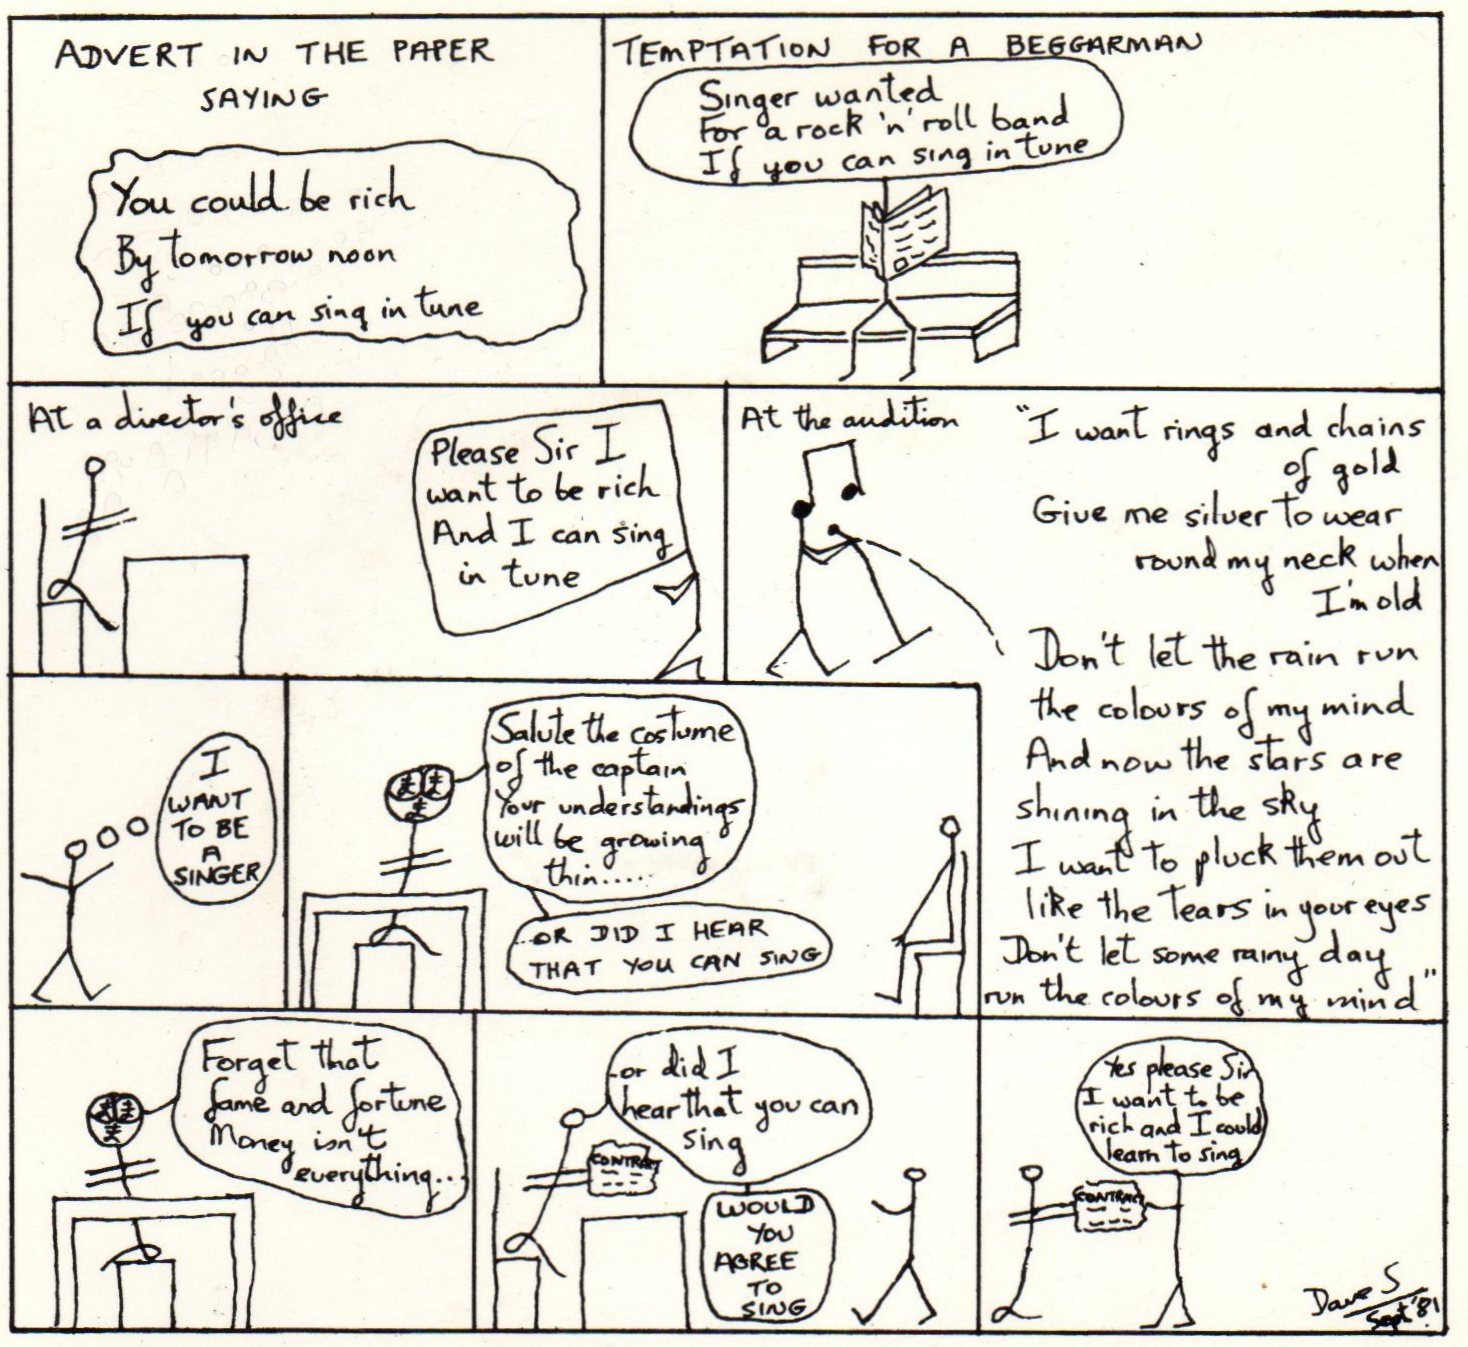 ADVERT IN THE PAPER
SAYING
You could be rich
By tomorrow noon
If you can sing in tune
TEMPTATION FOR A BEGGARMAN
Singer wanted
For a rock 'n' roll band
If you can sing in tune
At a director's office
Please Sir I
want to be rich
And I can sing
in tune
At the audition
"I want rings and chains
of gold
Give me silver to wear
round my neck when
I'm old
Don't let the rain run
the colours of my mind
And now the stars are
shining in the sky
I want to pluck them out
like the tears in your eyes
Don't let some rainy day
run the colours of my mind"
I
WANT
TO BE
A
SINGER
Salute the costume
of the captain
Your understandings
will be growing
thin.....
...OR DID I HEAR
THAT YOU CAN SING
Forget that
fame and fortune
Money isn't
everything...
..or did I
hear that you can
sing
CONTRACT
WOULD
YOU
AGREE
TO
SING
Yes please Sir
I want to be
rich and I could
learn to sing
CONTRACT
Dave S
Sept '81